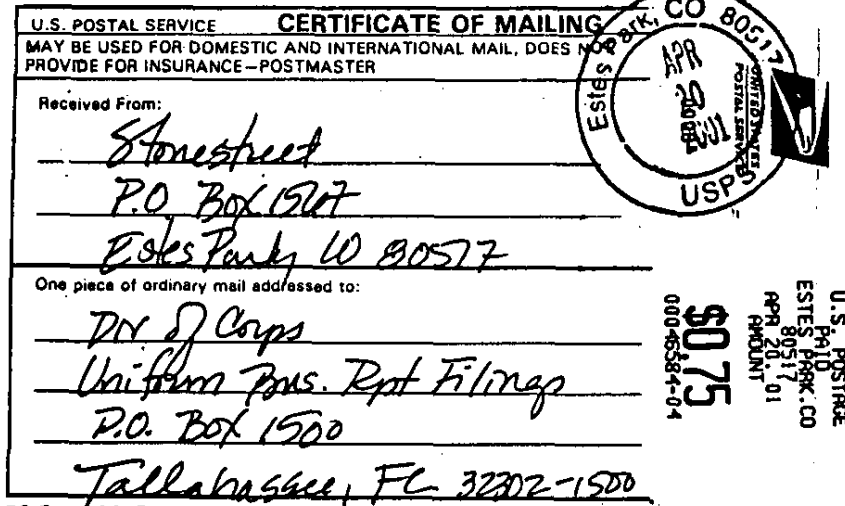 U.S. POSTAL SERVICE CERTIFICATE OF MAILING
MAY BE USED FOR DOMESTIC AND INTERNATIONAL MAIL, DOES NOT
PROVIDE FOR INSURANCE—POSTMASTER
Received From:
Stonestreet
P.O. Box 1567
Estes Park, CO 80517
One piece of ordinary mail addressed to:
Div of Corps
Uniform Bus. Rpt Filings
P.O. Box 1500
Tallahassee, FL 32302-1500
Estes Park, CO 80517
APR
20
2001
USPS
UNITED STATES
POSTAL SERVICE
U.S. POSTAGE
PAID
ESTES PARK, CO
80517
APR 20, 01
AMOUNT
$0.75
00046584-04